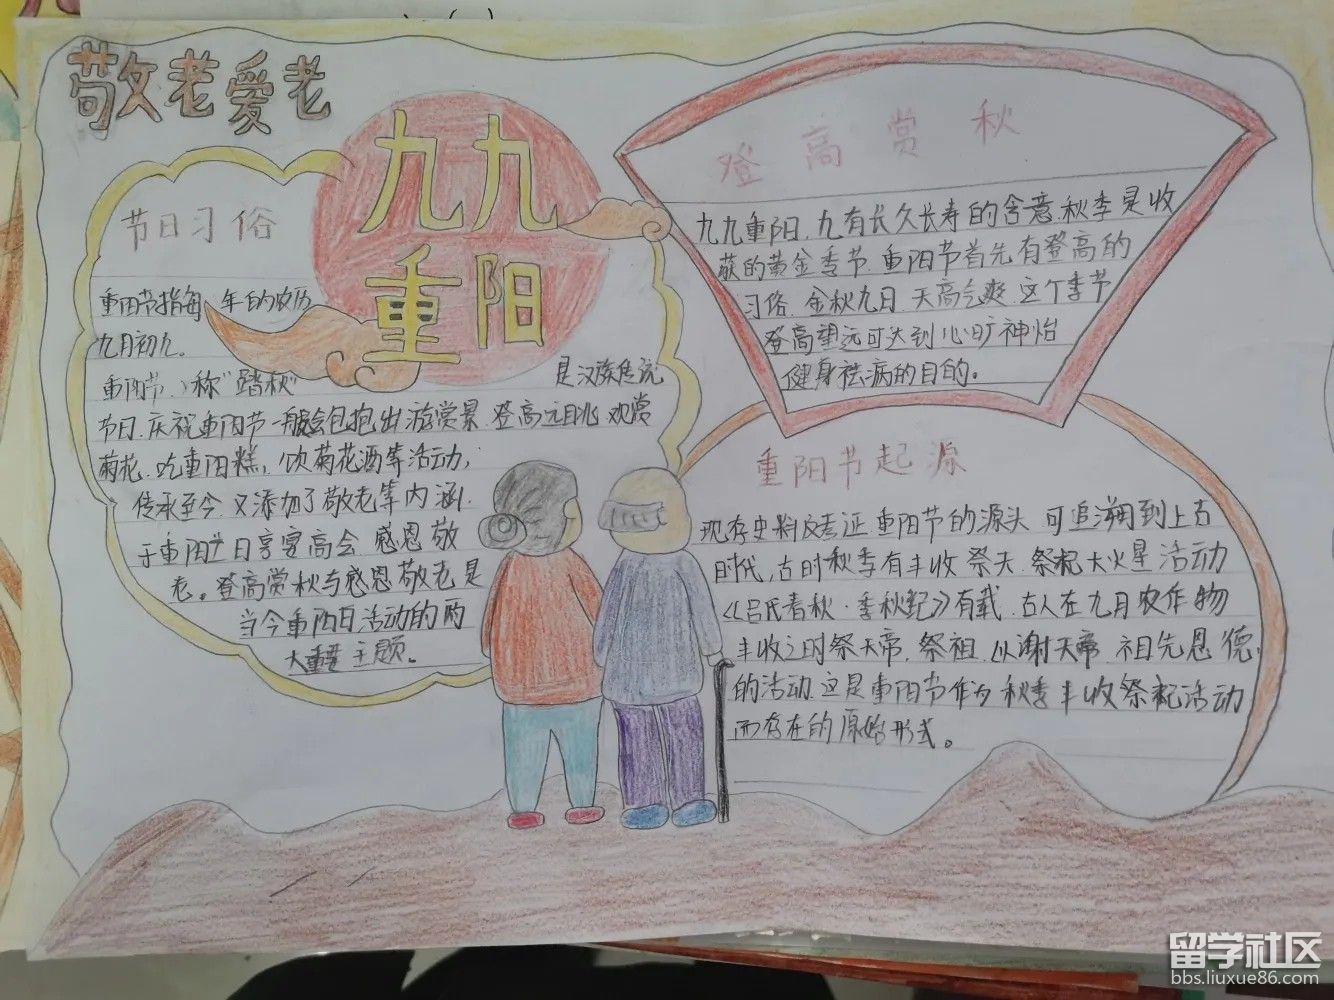 敬老爱老
九九
重阳
节日习俗
重阳节指每年的农历
九月初九。
重阳节、称"踏秋"是汉族传说
节日.庆祝重阳节一般会包抱出游赏景.登高远目兆观赏
菊花.吃重阳糕,饮菊花酒等活动,
传承至今.又添加了敬老等内涵.
于重阳日享宴高会感恩敬
老。登高赏秋与感恩敬老是
当今重阳日活动的两
大重要主题。
登高赏秋
九九重阳.九有长久长寿的含意.秋季是收
获的黄金季节.重阳节首先有登高的
习俗.金秋九月.天高气爽.这个季节
登高望远可达到心旷神怡
健身祛病的目的。
重阳节起源
现存史料及考证重阳节的源头可追溯到上古
时代,古时秋季有丰收祭天.祭祀大火星活动
《吕氏春秋·季秋纪》有载.古人在九月农作物
丰收之时祭天帝.祭祖.以谢天帝.祖先恩德.
的活动.这是重阳节作为秋季丰收祭祀活动
而存在的原始形式。
留学社区
bbs.liuxue86.com